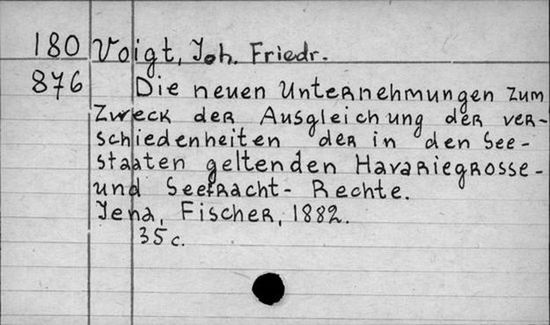 180 Voigt, Joh. Friedr.
876 Die neuen Unternehmungen zum
Zweck der Ausgleichung der ver-
schiedenheiten der in den See-
staaten geltenden Havariegrosse-
und Seefracht- Rechte.
Jena, Fischer, 1882.
35 c.